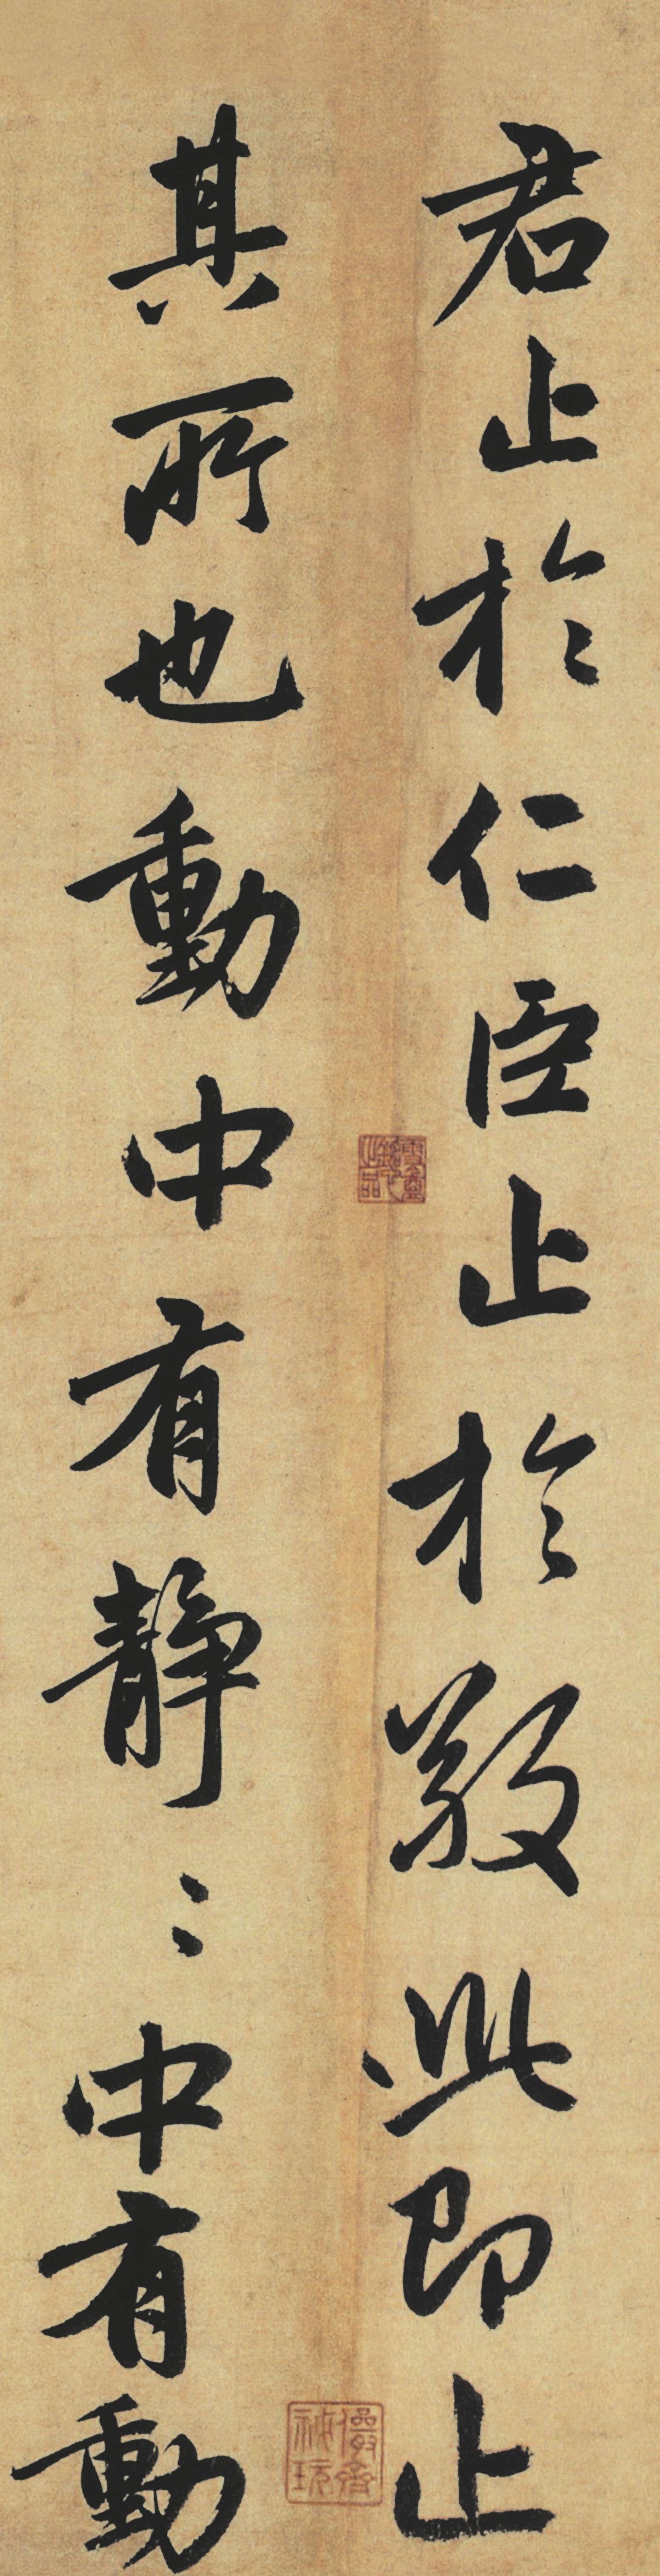 君止於仁臣止於敬此即止
其所也動中有靜〻中有動